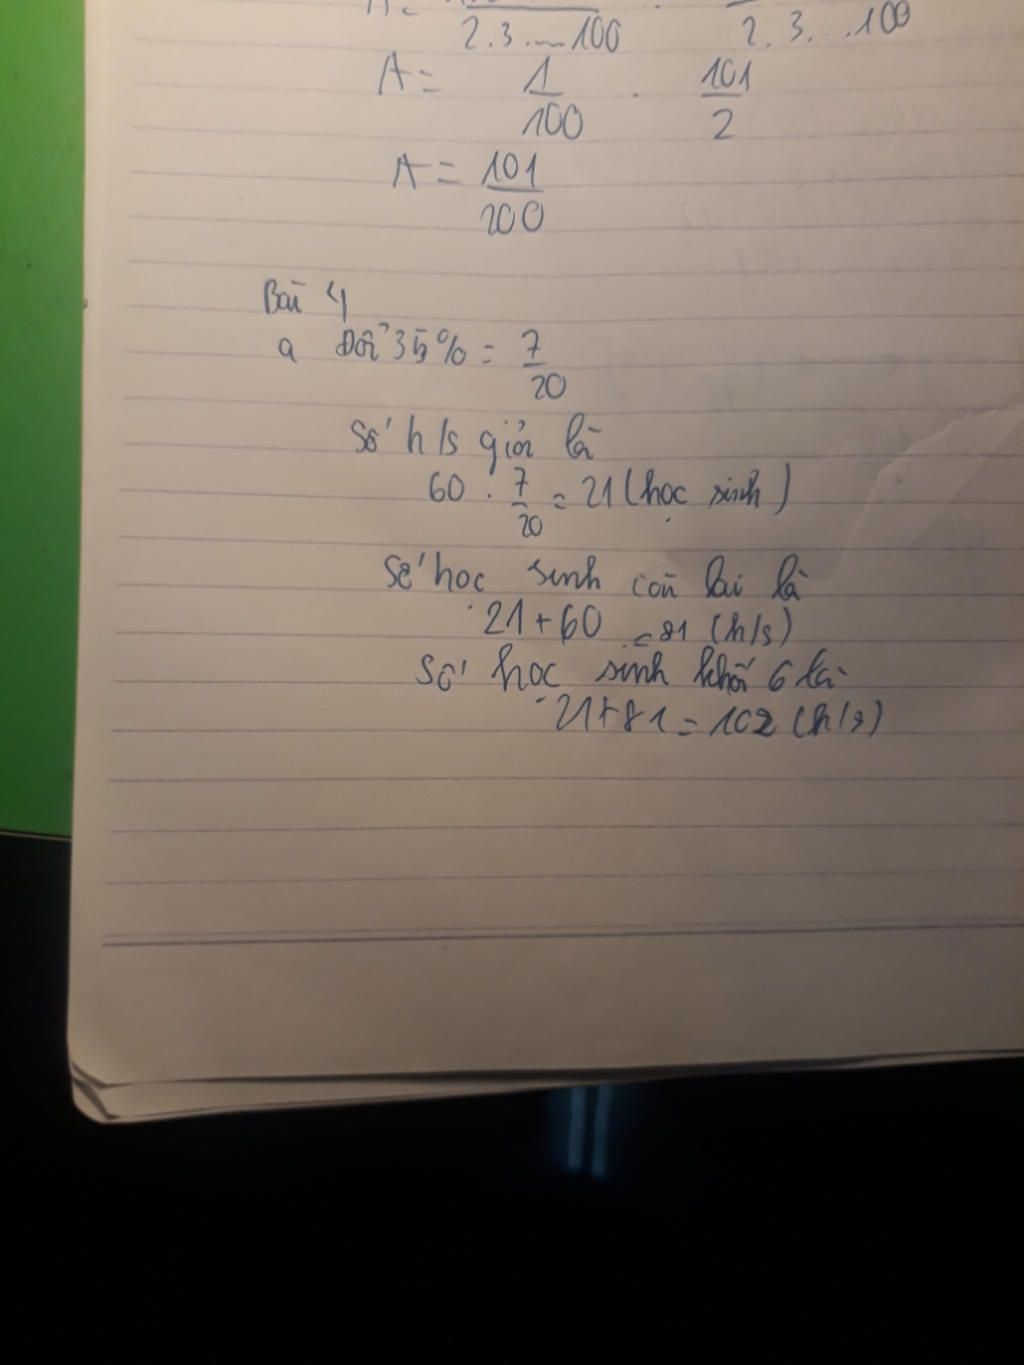 A =
2.3....100 . 2.3...100
A = 1/100 . 101/2
A = 101/200
Bài 4
a Đổi 35% = 7/20
Số h/s giỏi là
60 . 7/20 = 21 (học sinh)
Số học sinh còn lại là
21+60 = 81 (h/s)
Số học sinh khối 6 là
21+81 = 102 (h/s)